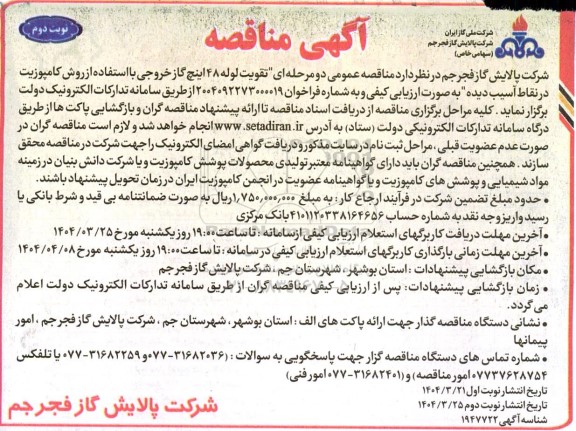 شرکت ملی گاز ایران
شرکت پالایش گاز فجر جم
(سهامی خاص)
آگهی مناقصه
نوبت دوم
شرکت پالایش گاز فجر جم در نظر دارد مناقصه عمومی دو مرحله ای "تقویت لوله ۴۸ اینچ گاز خروجی با استفاده از روش کامپوزیت
در نقاط آسیب دیده" به صورت ارزیابی کیفی و به شماره فراخوان ۲۰۰۴۰۹۲۲۷۳۰۰۰۰۱۹ از طریق سامانه تدارکات الکترونیک دولت
برگزار نماید . کلیه مراحل برگزاری مناقصه از دریافت اسناد مناقصه تا ارائه پیشنهاد مناقصه گران و بازگشایی پاکت ها از طریق
درگاه سامانه تدارکات الکترونیکی دولت (ستاد) به آدرس www.setadiran.ir انجام خواهد شد و لازم است مناقصه گران در
صورت عدم عضویت قبلی ، مراحل ثبت نام در سایت مذکور و دریافت گواهی امضای الکترونیک را جهت شرکت در مناقصه محقق
سازند . همچنین مناقصه گران باید دارای گواهینامه معتبر تولیدی محصولات پوشش کامپوزیت و یا شرکت دانش بنیان در زمینه
مواد شیمیایی و پوشش های کامپوزیت و یا گواهینامه عضویت در انجمن کامپوزیت ایران در زمان تحویل پیشنهاد باشند.
• حدود مبلغ تضمین شرکت در فرآیند ارجاع کار : به مبلغ ۱,۷۵۰,۰۰۰,۰۰۰ ریال به صورت ضمانتنامه بی قید و شرط بانکی یا
رسید واریز وجه نقد به شماره حساب ۴۱۰۱۱۲۰۳۳۸۱۶۴۶۵۶ بانک مرکزی
• آخرین مهلت دریافت کاربرگهای استعلام ارزیابی کیفی از سامانه : تا ساعت ۱۹:۰۰ روز یکشنبه مورخ ۱۴۰۴/۰۳/۲۵
• آخرین مهلت زمانی بارگذاری کاربرگهای استعلام ارزیابی کیفی در سامانه : تا ساعت ۱۹:۰۰ روز یکشنبه مورخ ۱۴۰۴/۰۴/۰۸
• مکان بازگشایی پیشنهادات : استان بوشهر ، شهرستان جم ، شرکت پالایش گاز فجر جم
• زمان بازگشایی پیشنهادات: پس از ارزیابی کیفی مناقصه گران از طریق سامانه تدارکات الکترونیک دولت اعلام
می گردد.
• نشانی دستگاه مناقصه گذار جهت ارائه پاکت های الف : استان بوشهر ، شهرستان جم ، شرکت پالایش گاز فجر جم ، امور
پیمانها
• شماره تماس های دستگاه مناقصه گزار جهت پاسخگویی به سوالات : (۳۱۶۸۲۰۳۶-۰۷۷ و ۳۱۶۸۲۲۵۹-۰۷۷ یا تلفکس
۰۷۷۳۷۶۲۸۷۵۴ امور مناقصه) و (۳۱۶۸۲۴۰۱-۰۷۷ امور فنی)
تاریخ انتشار نوبت اول ۱۴۰۴/۳/۲۱
تاریخ انتشار نوبت دوم ۱۴۰۴/۳/۲۵
شناسه آگهی ۱۹۴۷۷۲۲
شرکت پالایش گاز فجر جم